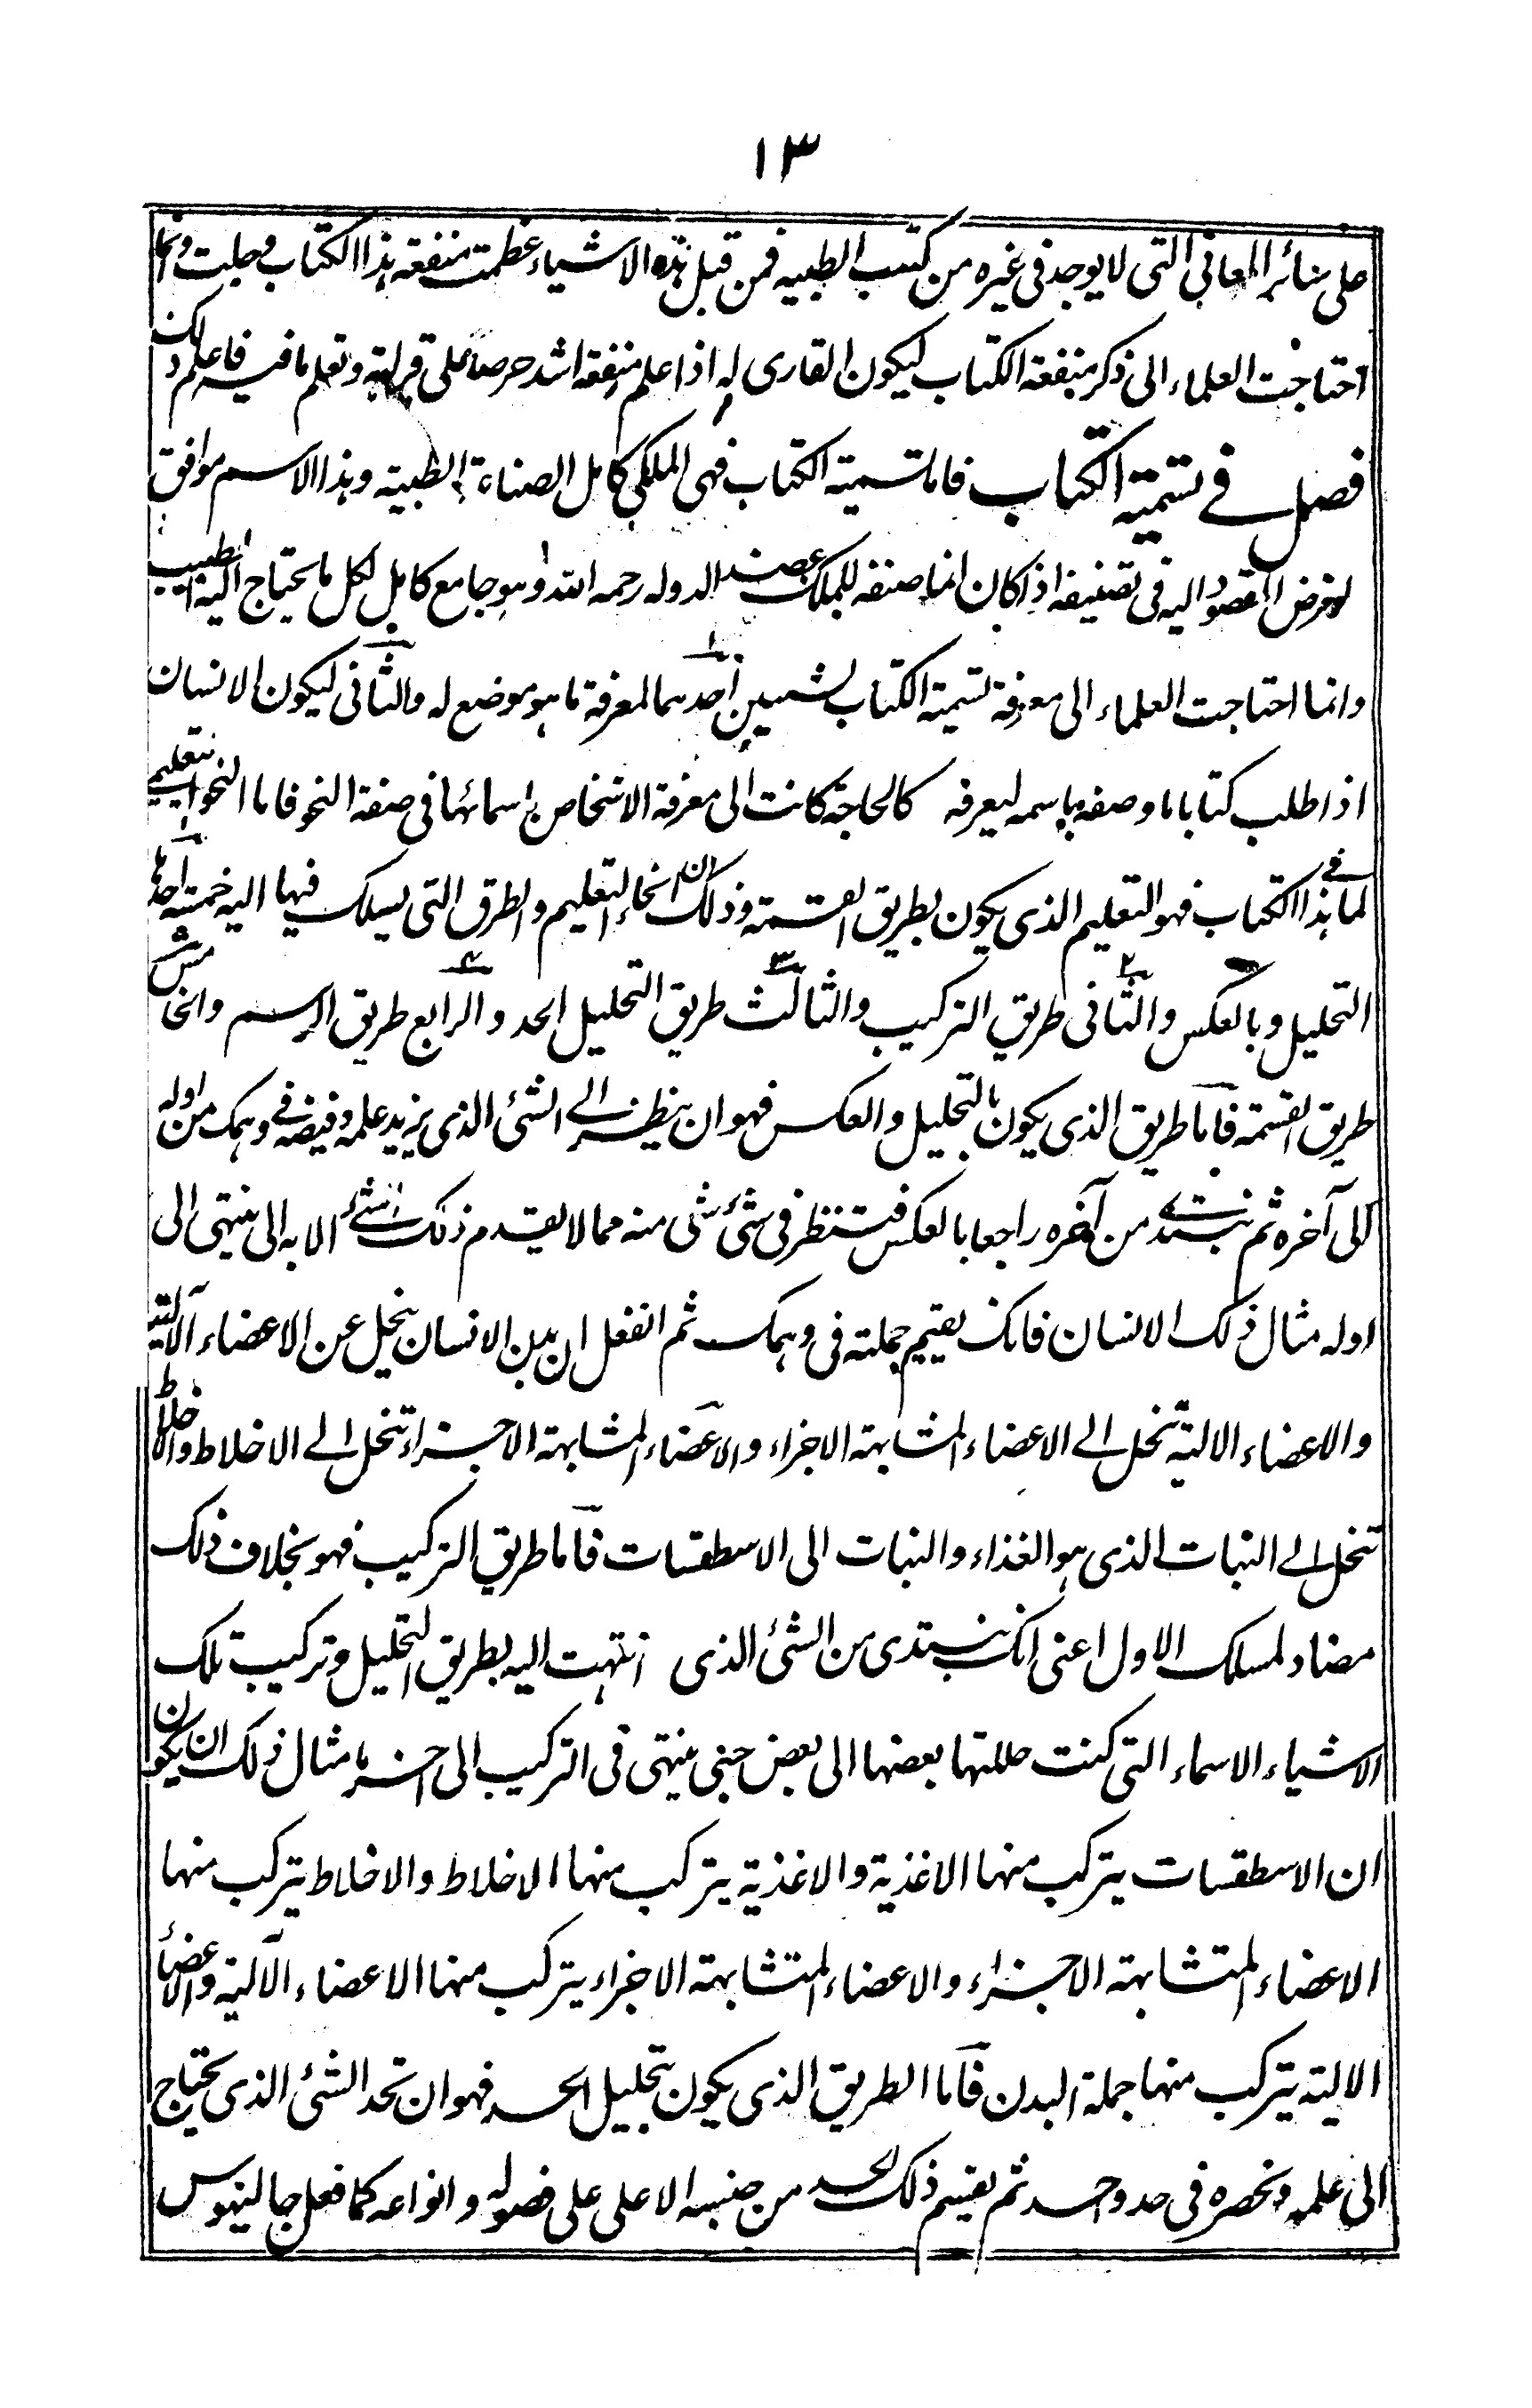 ١٣
على سائر المعانى التى لا يوجد فى غيره من كتب الطبيه فمن قبل هذه الاشياء عظمت منفعة هذا الكتاب وجلت وانما
احتاجت العلماء الى ذكر منفعة الكتاب ليكون القارى له اذا علم منفعة اشد حرصا على قرايته وتعلم ما فيه فاعلم ذلك
فصل فى تسمية الكتاب فاما تسمية الكتاب فهى الملكى كامل الصناعة الطبية وهذا الاسم موافق
لغرض المقصود اليه فى تصنيفه اذ كان انما صنفه للملك عضد الدوله رحمه الله وهو جامع كامل لكل ما يحتاج اليه الطبيب
وانما احتاجت العلماء الى معرفة تسمية الكتاب لشيئين احدهما لمعرفة ما هو موضع له والثانى ليكون الانسان
اذا طلب كتابا ما وصفه باسمه ليعرفه كالحاجة كانت الى معرفة الاشخاص باسمائها فى صفة النحو فاما النحو تعليم
لما فى هذا الكتاب فهو التعليم الذى يكون بطريق القسمة وذلك ان انحاء التعليم والطرق التى يسلك فيها اليه خمسة احدها
التحليل وبالعكس والثانى طريق التركيب والثالث طريق التحليل الحد والرابع طريق الرسم والخامس
طريق القسمة فاما طريق الذى يكون بالتحليل والعكس فهو ان ينظر الى الشئ الذى يزيد علمه وفيضه فى وهمك من اوله
الى آخره ثم يبتدئ من آخره راجعا بالعكس فتنظر فى شئ شئ منه مما لا يقدم ذلك الشئ الا به الى ينتهى الى
اوله مثال ذلك الانسان فانك يقيم جملته فى وهمك ثم انفعل ان بدن الانسان ينحل عن الاعضاء الآلية
والاعضاء الالية تنحل الى الاعضاء المشابهة الاجزاء والاعضاء المشابهة الاجزاء تنحل الى الاخلاط والاخلاط
تنحل الى النبات الذى هو الغذاء والنبات الى الاسطقسات فاما طريق التركيب فهو بخلاف ذلك
مضاد لمسلك الاول اعنى انك يبتدى من الشئ الذى انتهت اليه بطريق التحليل وتركيب تلك
الاشياء الاسماء التى كنت حللتها بعضها الى بعض حتى ينتهى فى التركيب الى اخرها مثال ذلك ان يكون
ان الاسطقسات يتركب منها الاغذية والاغذية يتركب منها الاخلاط والاخلاط يتركب منها
الاعضاء المتشابهة الاجزاء والاعضاء المتشابهة الاجزاء يتركب منها الاعضاء الآلية والاعضاء
الالية يتركب منها جملة البدن فاما الطريق الذى يكون بتحليل الحد فهو ان تحد الشئ الذى يحتاج
الى علمه وتحصره فى حد وحد ثم يقسم ذلك الحد من جنسه الاعلى على فصوله وانواعه كما فعل جالينوس